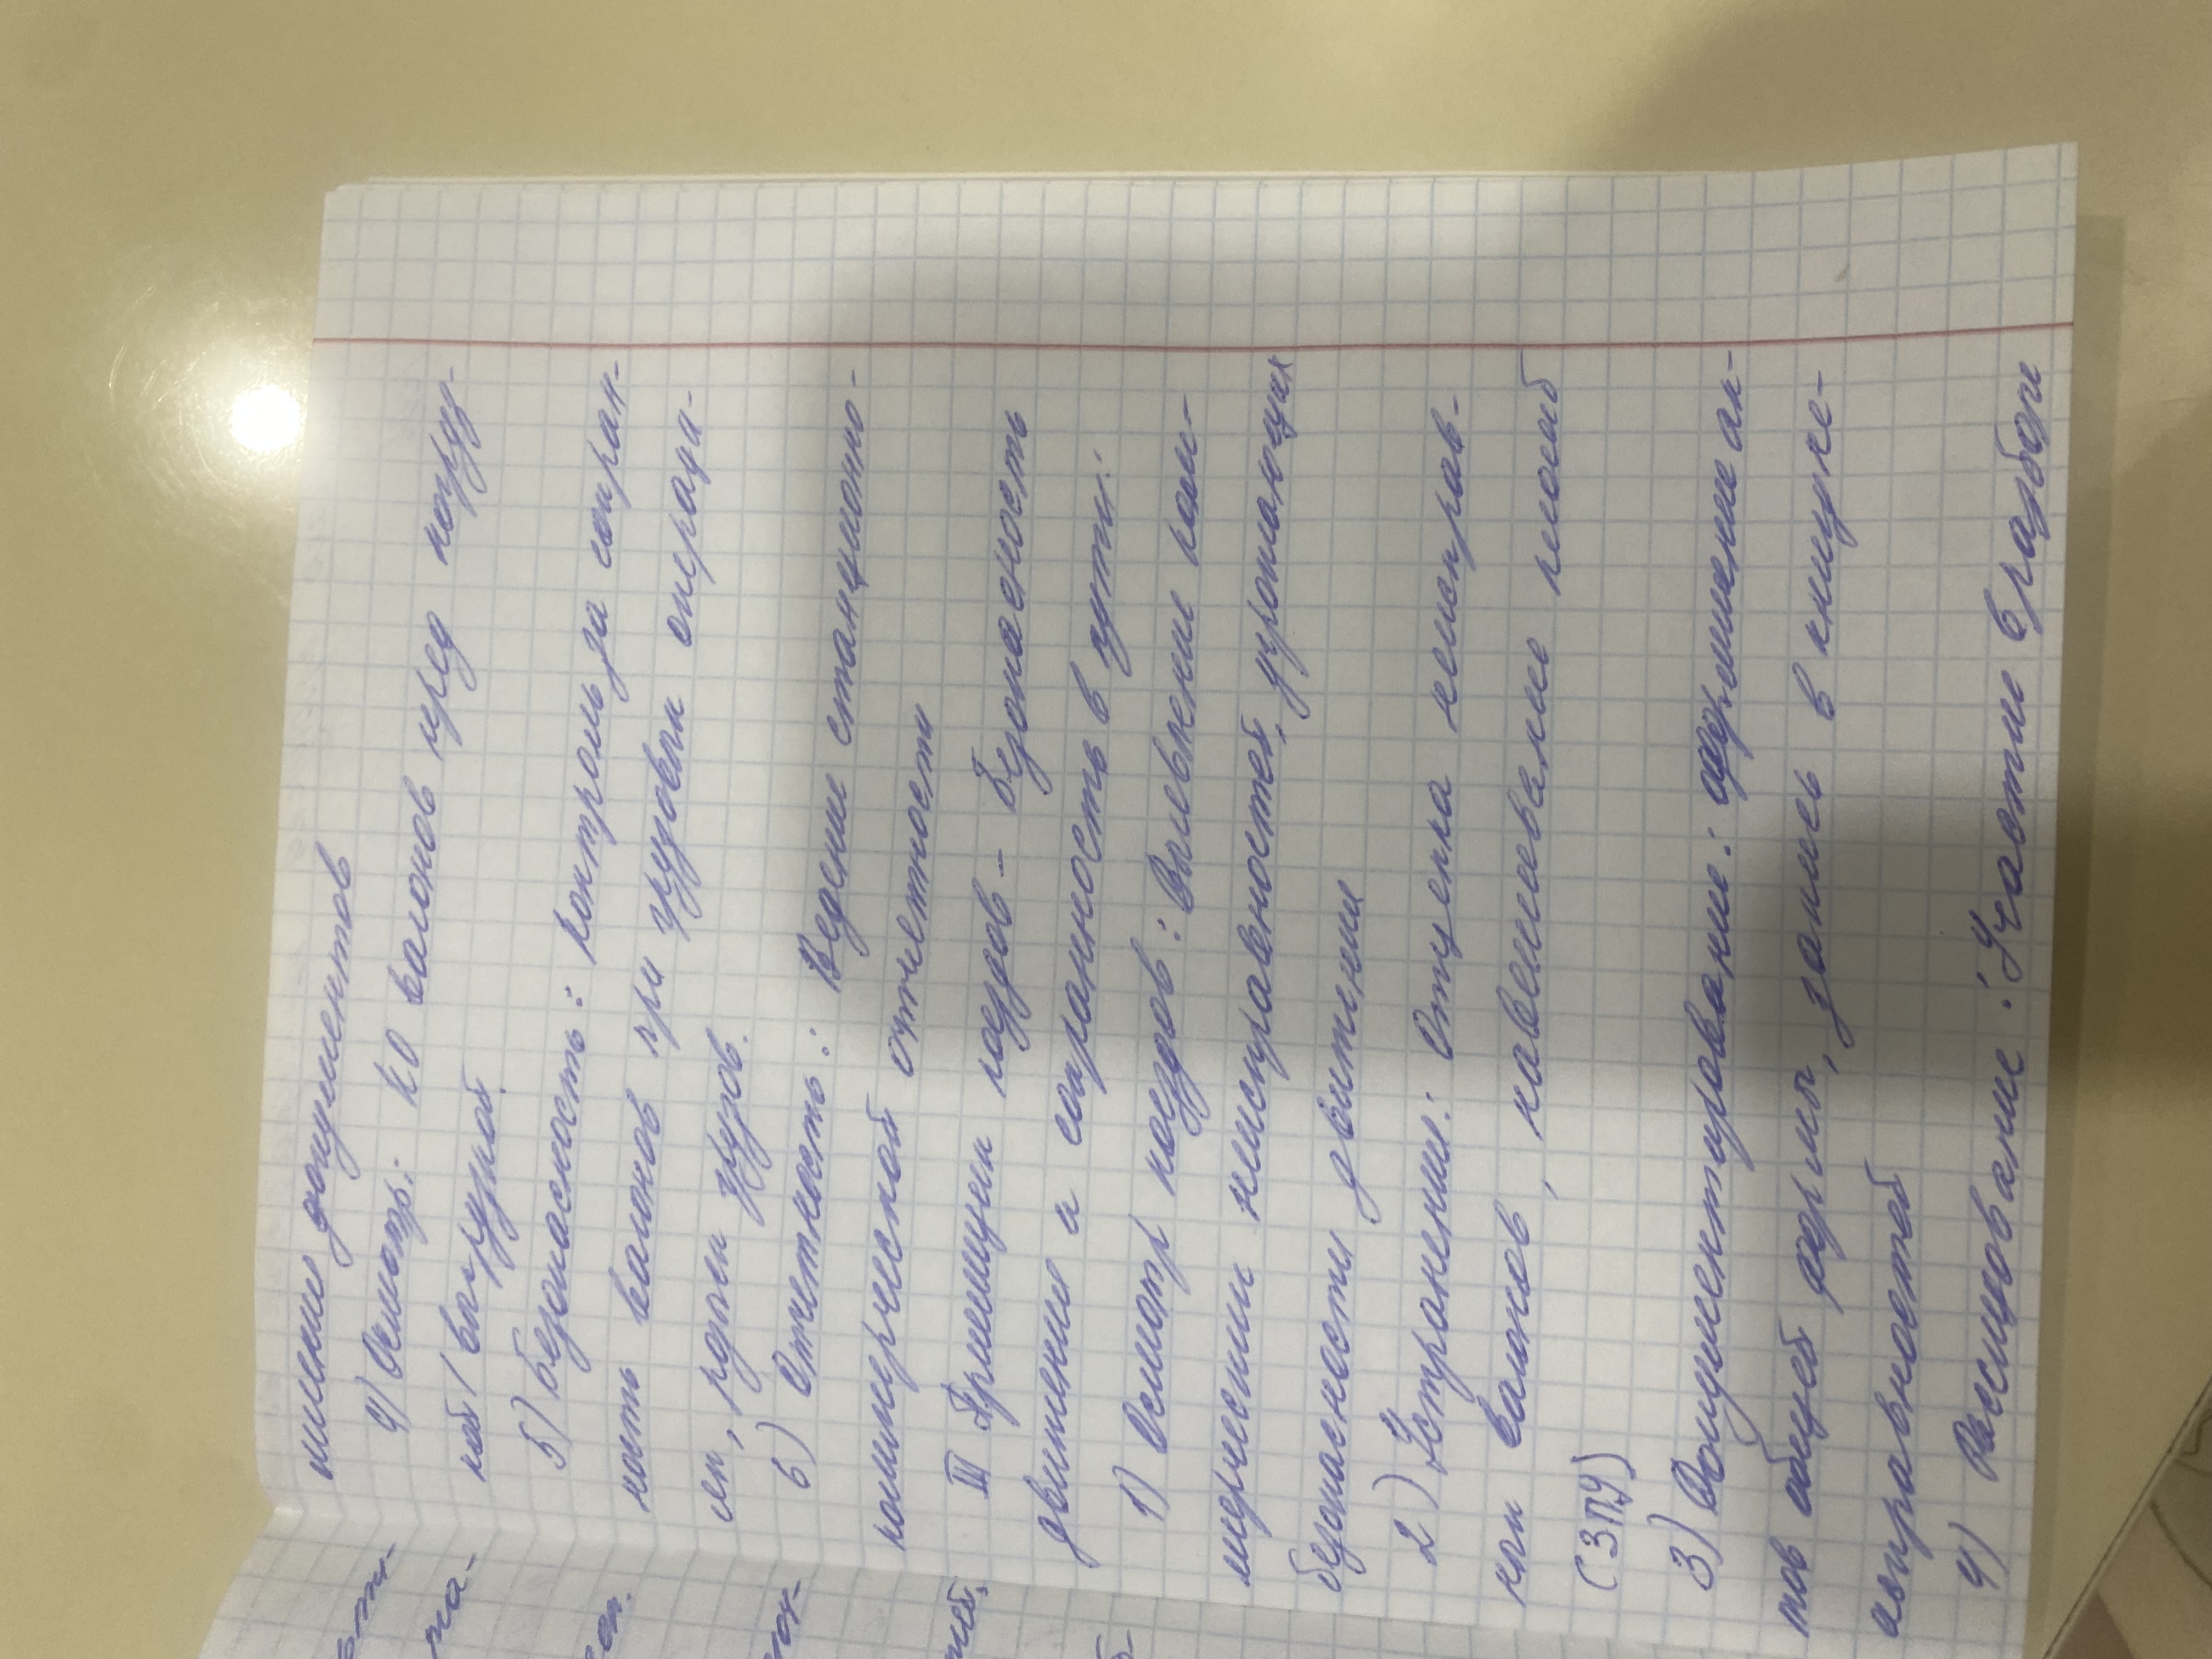 шении документов
4) Осмотр: КО вагонов пред погруз-
кой / выгрузкой.
5) безопасность: контроль за сохран-
ность вагонов при грузовых операци-
ях, розыск грузов.
6) Отчетность: Ведение станционно-
коммерческой отчетности
III Приемщики поездов - безопасность
движения и сохранность в пути:
1) Осмотр поездов: Выявление ком-
мерческих неисправностей, угрожающих
безопасности движения
2) Устранение: Отцепка неисправ-
ных вагонов, навешивание пломб
(ЗПУ)
3) Документирование: оформление ак-
тов общей формы, запись в книгу не-
исправностей
4) Расследование: Участие в разборе
ма-